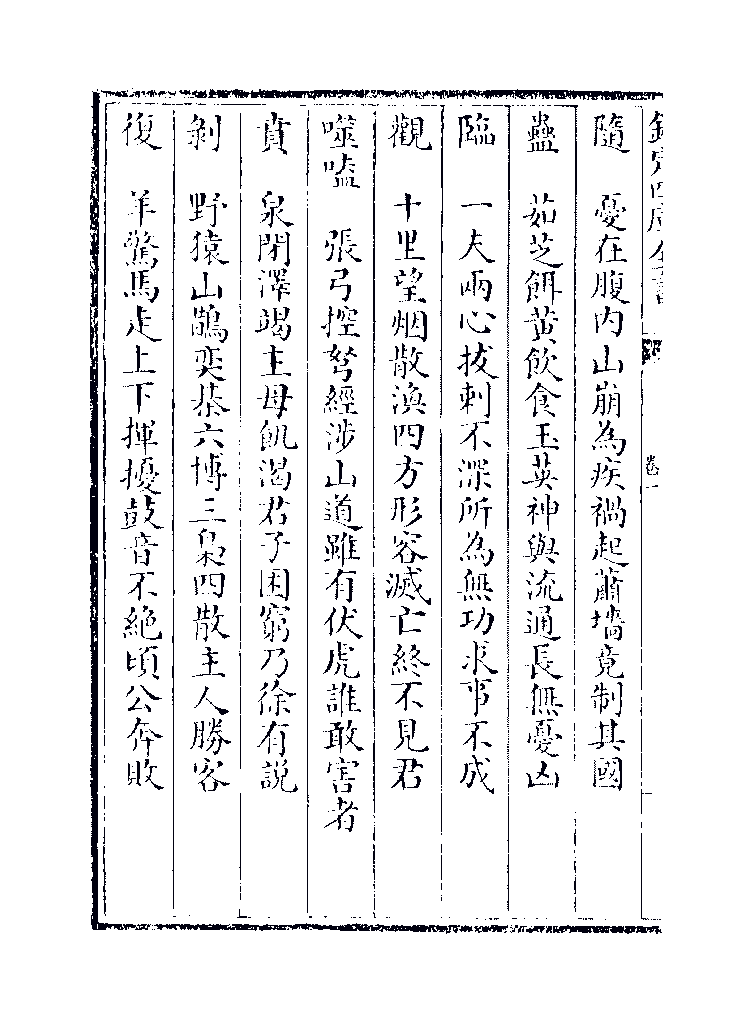 欽定四庫全書
卷一
隨　憂在腹内山崩為疾禍起蕭墻竟制其國
蠱　茹芝餌黄飲食玉英神與流通長無憂凶
臨　一夫兩心拔刺不深所為無功求事不成
觀　十里望烟散渙四方形容滅亡終不見君
噬嗑　張弓控弩經涉山道雖有伏虎誰敢害者
賁　泉閉澤竭主母飢渴君子困窮乃徐有説
剝　野猿山鵲奕棊六博三梟四散主人勝客
復　羊驚馬走上下揮擾鼓音不絶頃公奔敗